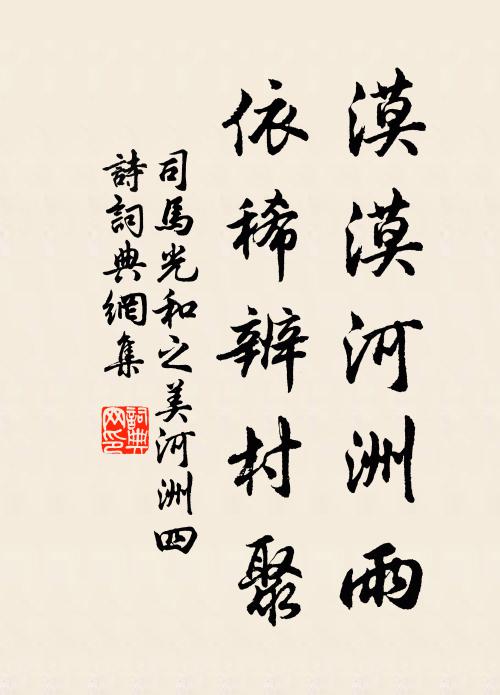 漠漠河洲雨
依稀辨村聚
司馬光和之美河洲四
詩詞典網集
詞典
网印